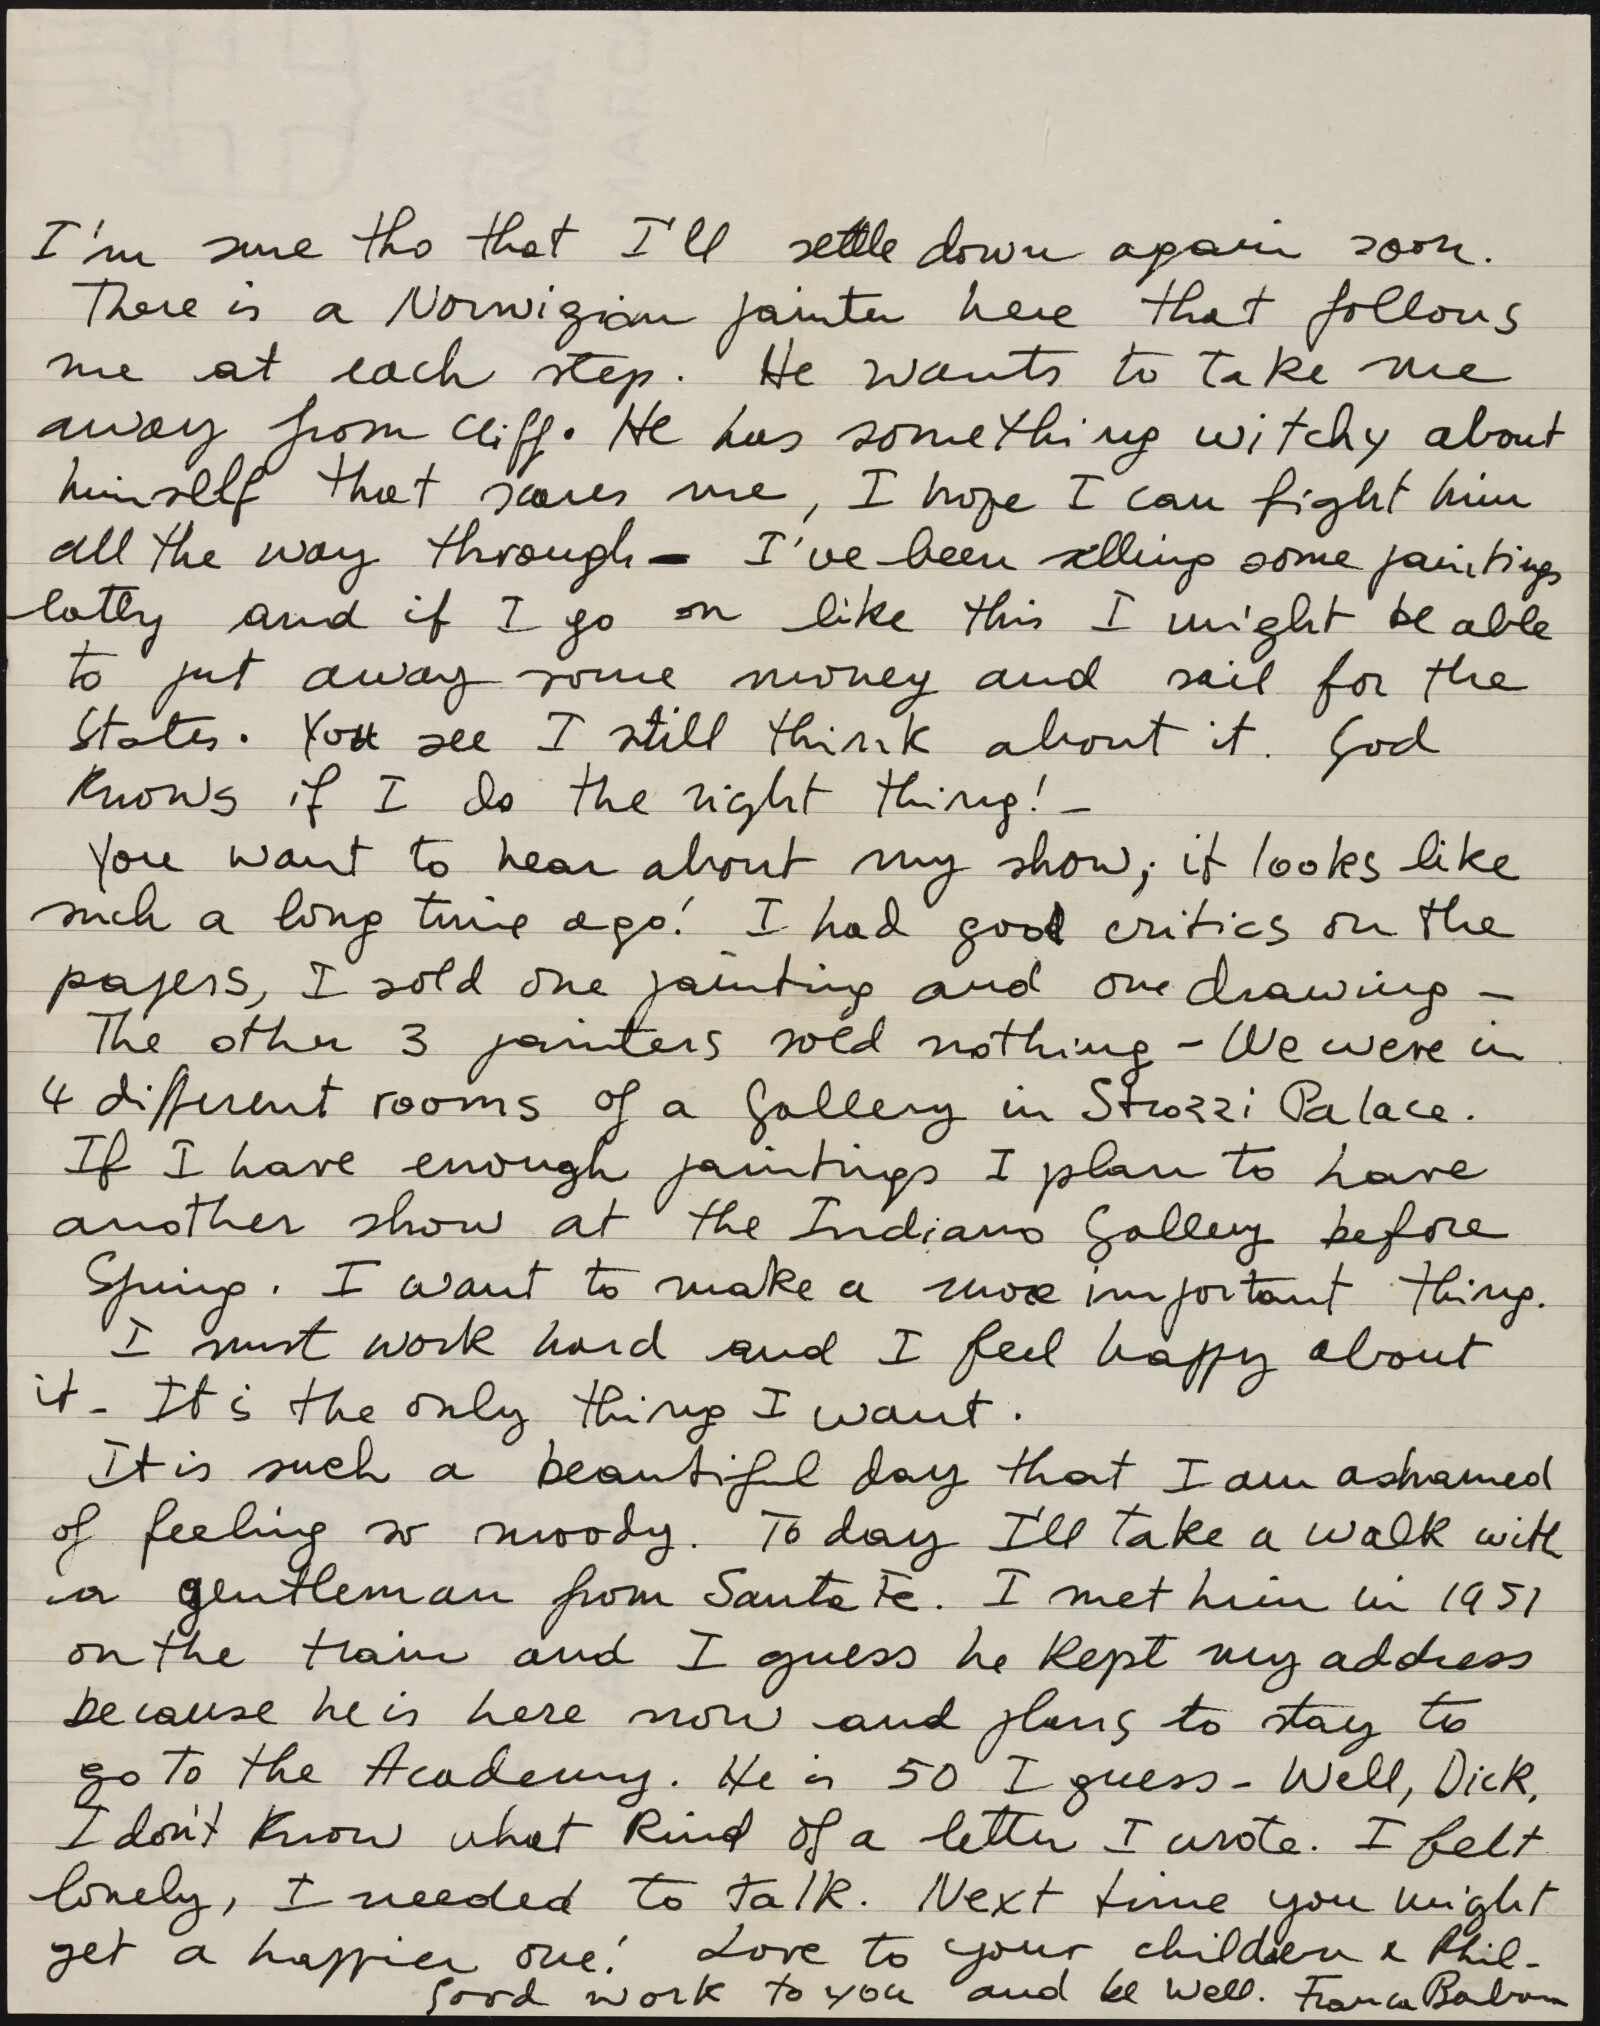 I'm sure tho that I'll settle down again soon.
There is a Norwigian painter here that follows
me at each step. He wants to take me
away from Cliff. He has something witchy about
himself that scares me, I hope I can fight him
all the way through - I've been selling some paintings
latly and if I go on like this I might be able
to put away some money and sail for the
States. You see I still think about it. God
knows if I do the right thing! -
You want to hear about my show; it looks like
such a long time ago! I had good critics on the
papers, I sold one painting and one drawing -
The other 3 painters sold nothing - We were in
4 different rooms of a Gallery in Strozzi Palace.
If I have enough paintings I plan to have
another show at the Indiano Gallery before
Spring. I want to make a more important thing.
I must work hard and I feel happy about
it - It is the only thing I want.
It is such a beautiful day that I am ashamed
of feeling so moody. To day I'll take a walk with
a gentleman from Santa Fe. I met him in 1951
on the train and I guess he kept my address
because he is here now and plans to stay to
go to the Academy. He is 50 I guess - Well, Dick,
I don't know what kind of a letter I wrote. I felt
lonely, I needed to talk. Next time you might
get a happier one! Love to your children & Phil -
Good work to you and be well. Franca